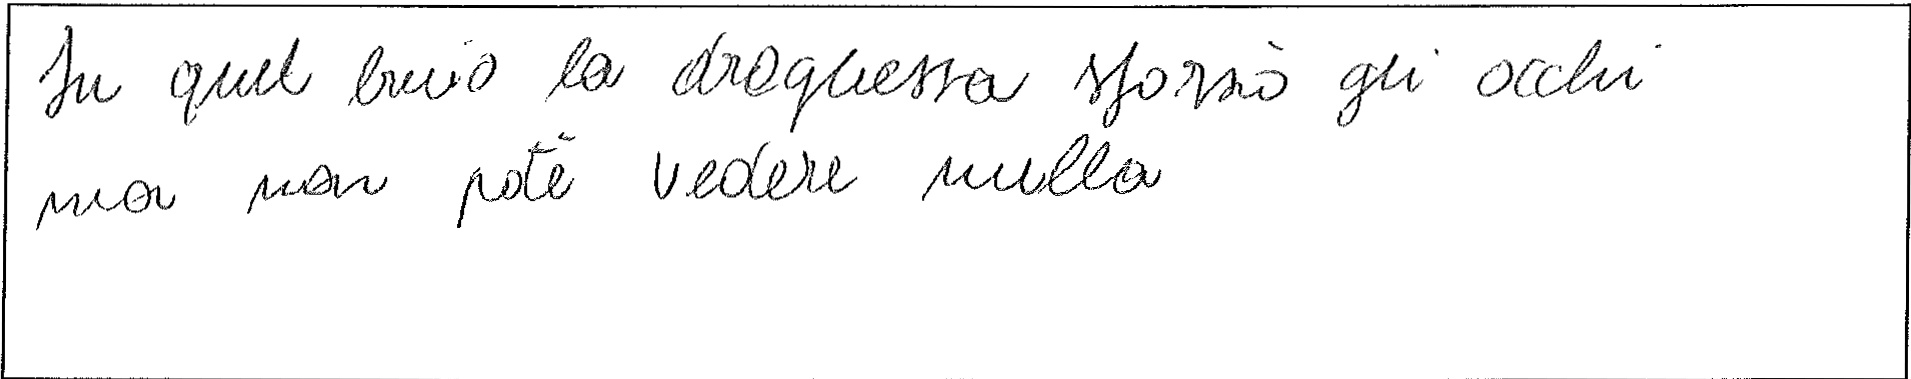 In quel buio la draghessa sforzò gli occhi
ma non poté vedere nulla